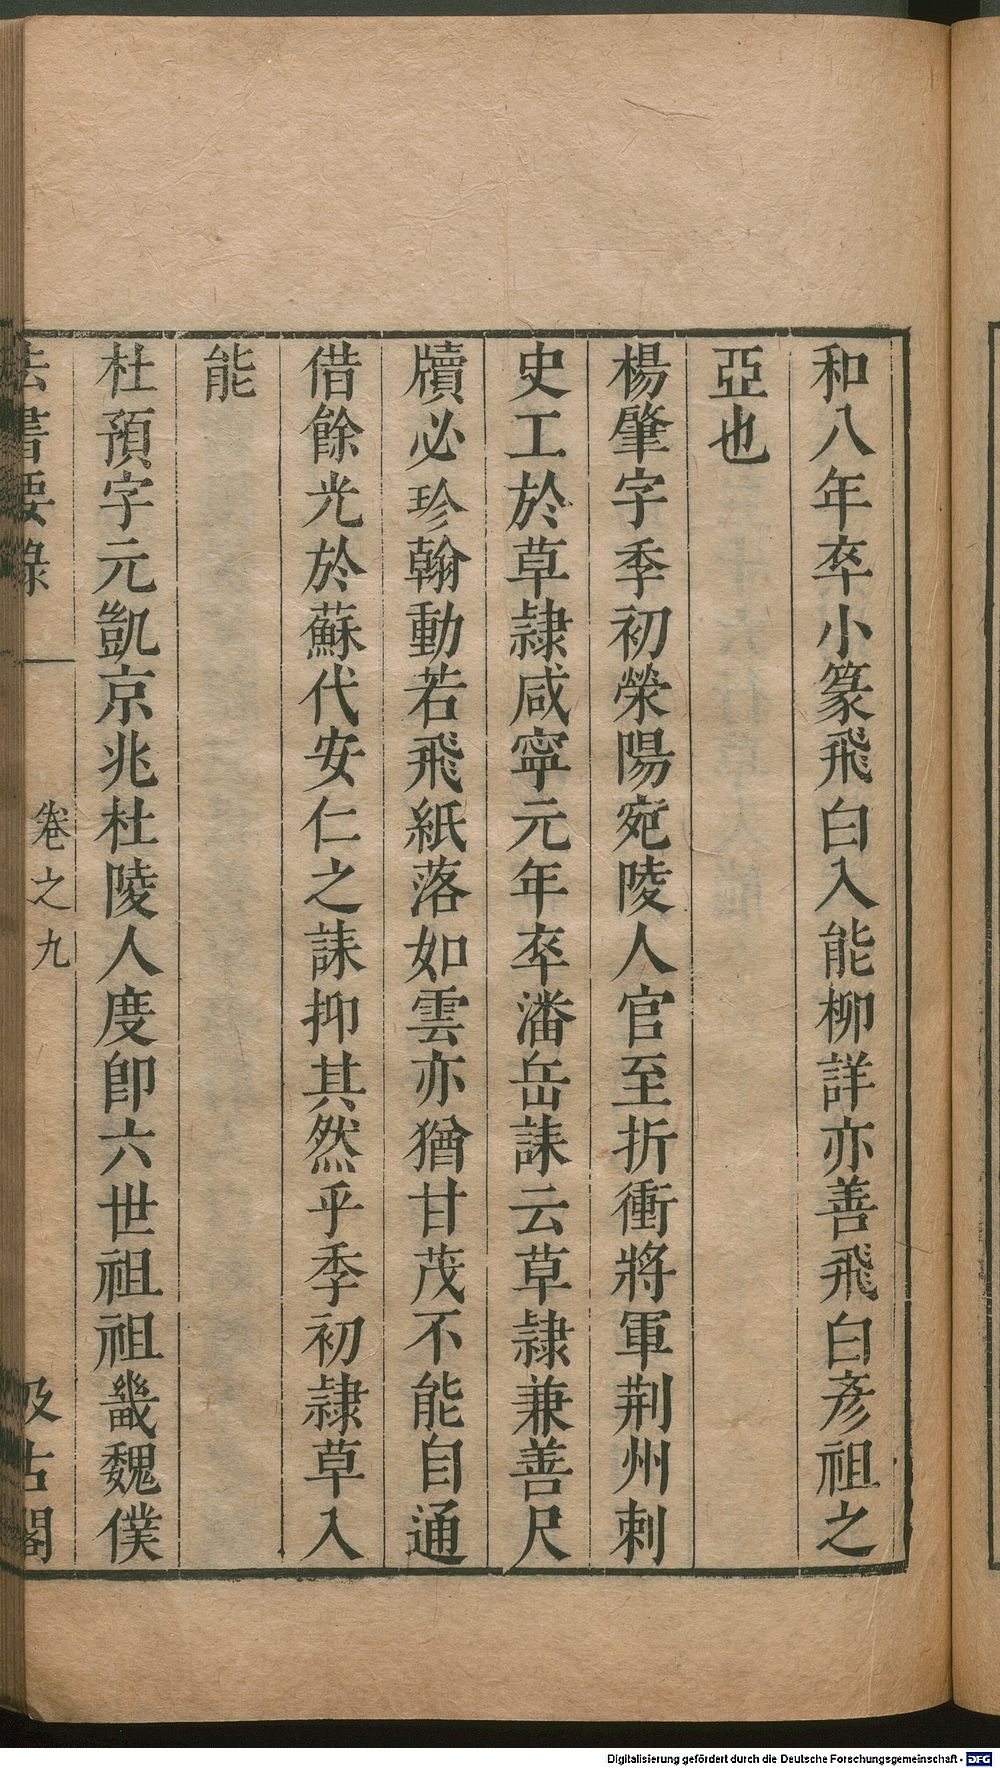 和八年卒小篆飛白入能柳詳亦善飛白彥祖之
亞也
楊肇字季初滎陽宛陵人官至折衝將軍荆州刺
史工於草隷咸寧元年卒潘岳誄云草隷兼善尺
牘必珍翰動若飛紙落如雲亦猶甘茂不能自通
借餘光於蘇代安仁之誄抑其然乎季初隷草入
能
杜預字元凱京兆杜陵人度卽六世祖祖畿魏僕
法書要錄 卷之九 汲古閣
Digitalisierung gefördert durch die Deutsche Forschungsgemeinschaft - DFG